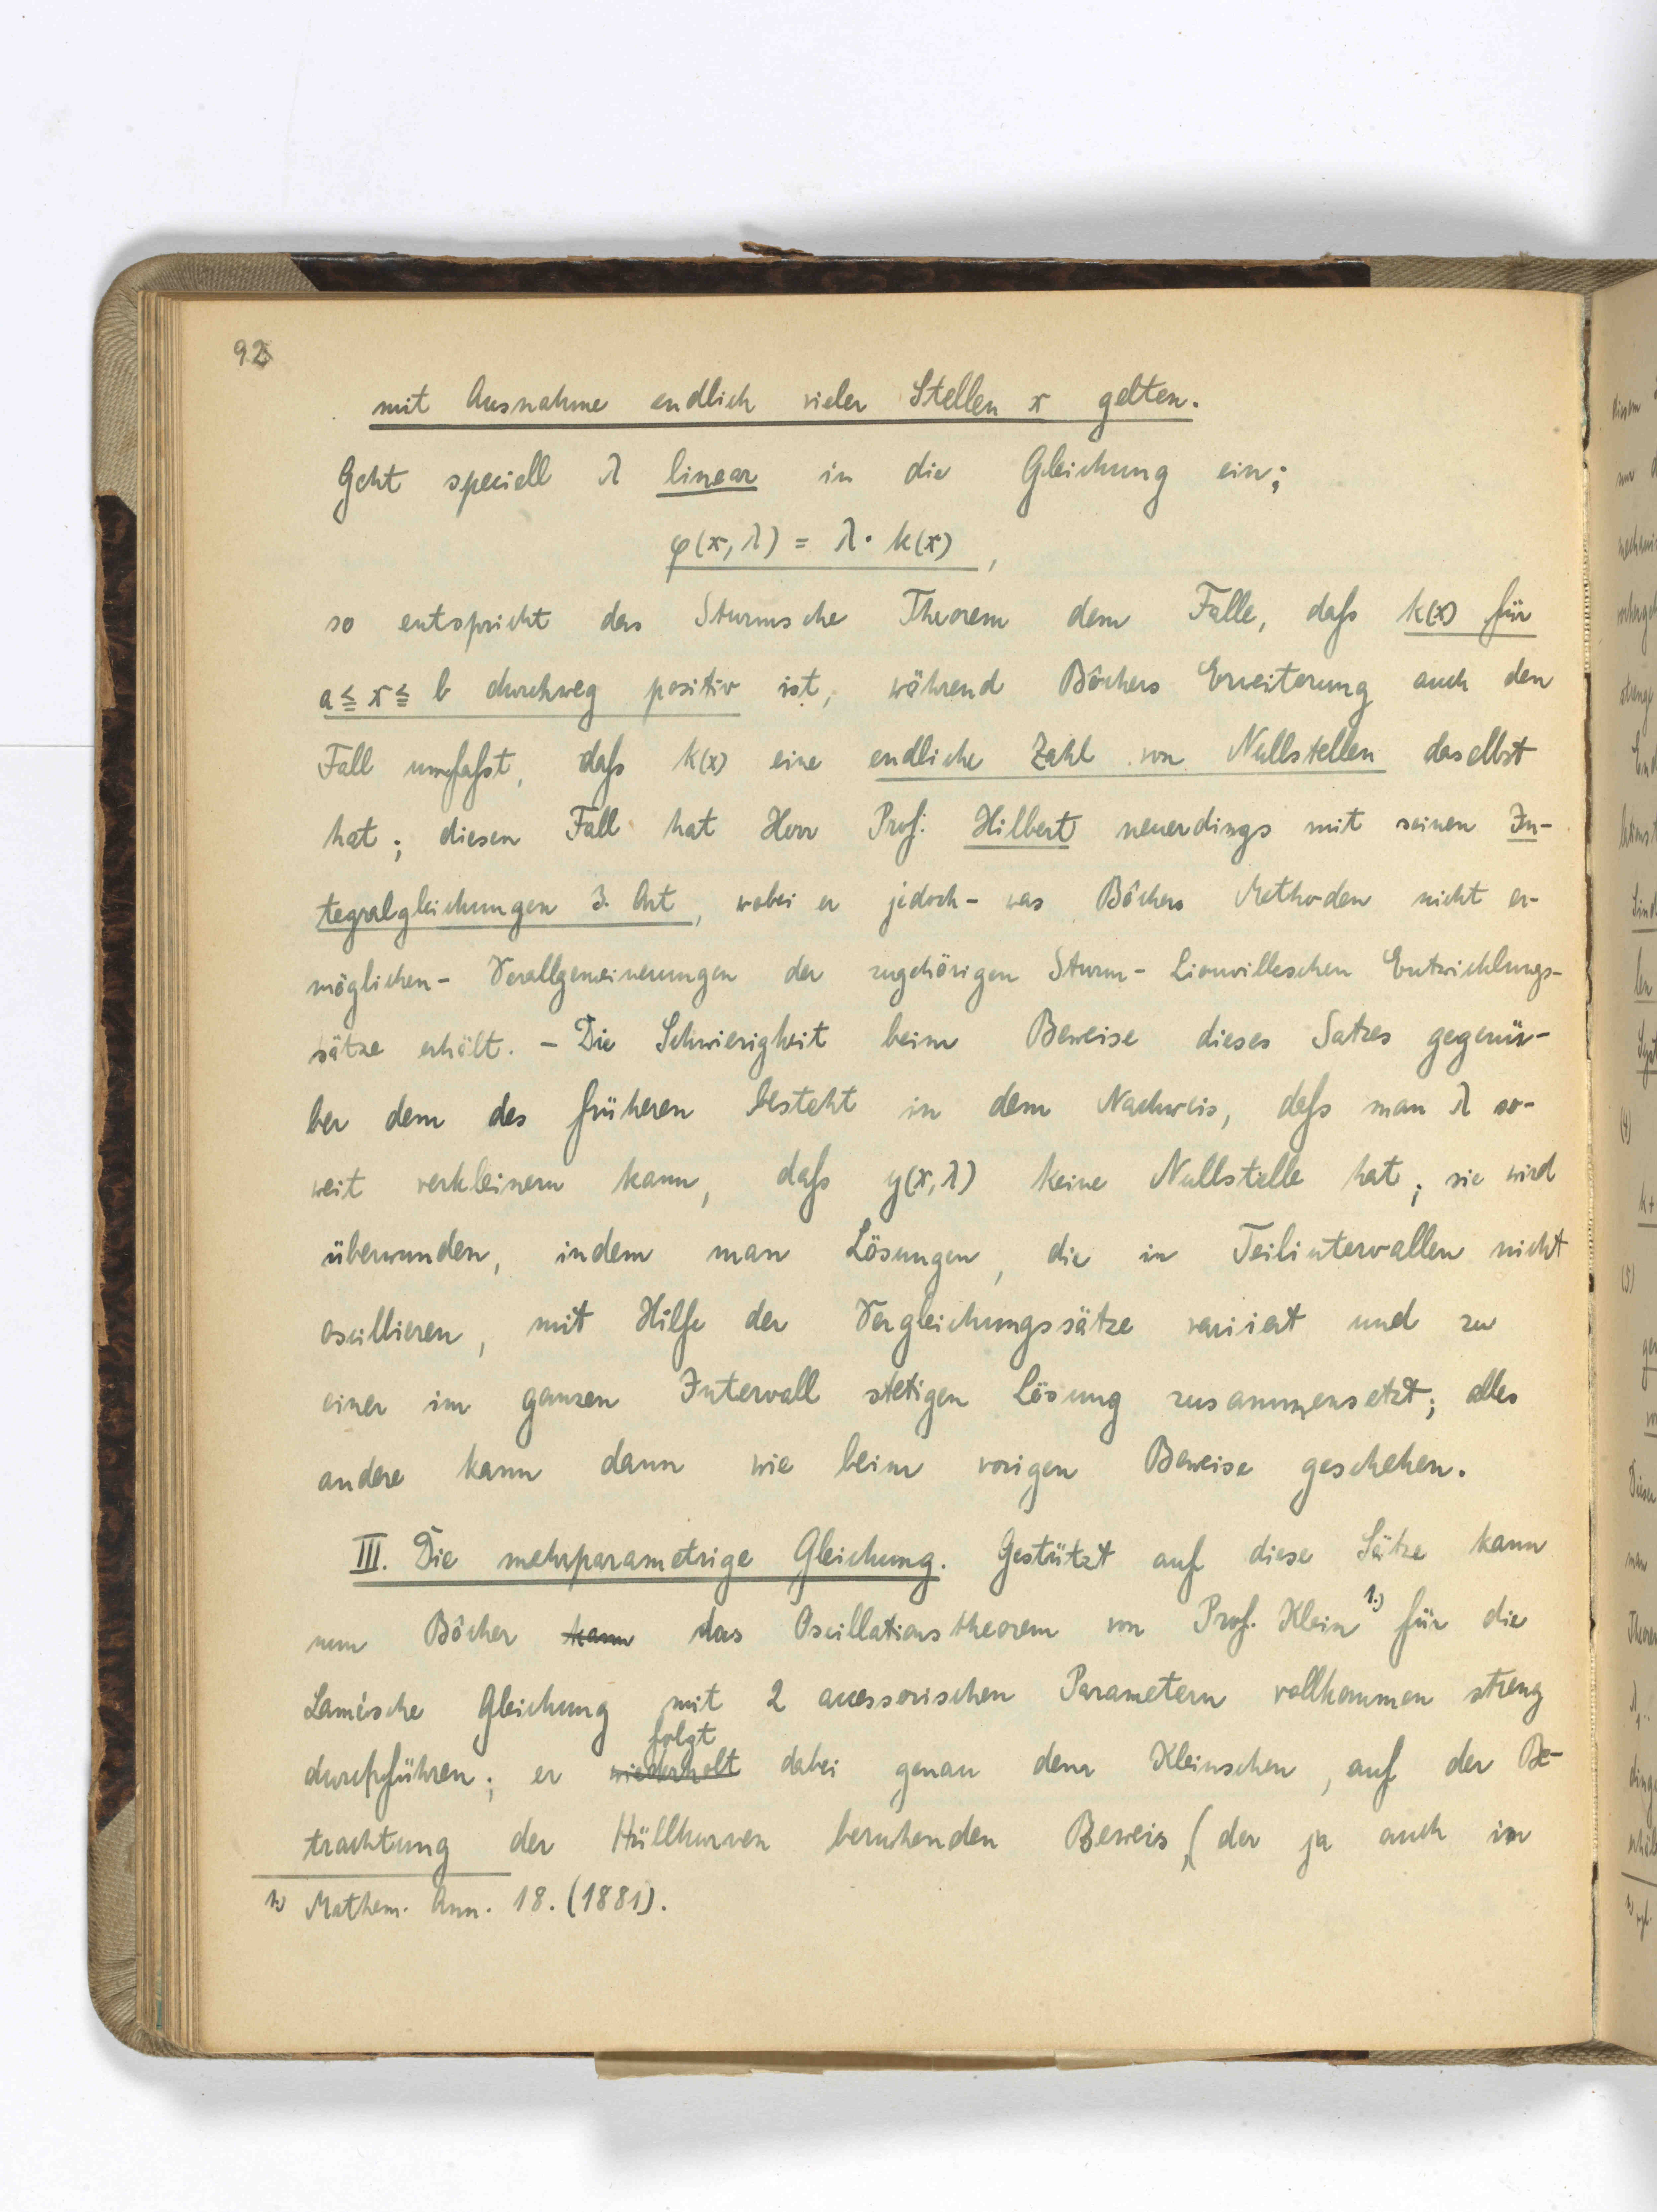 92
mit Ausnahme endlich vieler Stellen x gelten.
Geht speciell λ linear in die Gleichung ein;
φ(x, λ) = λ · k(x) ,
so entspricht das Sturmsche Theorem dem Falle, daſs k(x) für
a ≦ x ≦ b durchweg positiv ist, während Bôchers Erweiterung auch den
Fall umfaſst, daſs k(x) eine endliche Zahl von Nullstellen daselbst
hat; diesen Fall hat Herr Prof. Hilbert neuerdings mit seinen In-
tegralgleichungen 3. Art, wobei er jedoch - was Bôchers Methoden nicht er-
möglichen - Verallgemeinerungen der zugehörigen Sturm - Liouvilleschen Entwicklungs-
sätze erhält. – Die Schwierigkeit beim Beweise dieses Satzes gegenü-
ber dem des früheren besteht in dem Nachweis, daſs man λ so-
weit verkleinern kann, daſs y(x, λ) keine Nullstelle hat; sie wird
überwunden, indem man Lösungen, die in Teilintervallen nicht
oscillieren, mit Hilfe der Vergleichungssätze variiert und zu
einer im ganzen Intervall stetigen Lösung zusammensetzt; alles
andere kann dann wie beim vorigen Beweise geschehen.
III. Die mehrparametrige Gleichung. Gestützt auf diese Sätze kann
nun Bôcher kann das Oscillationstheorem von Prof. Klein 1.) für die
Lamésche Gleichung mit 2 accessorischen Parametern vollkommen streng
folgt
durchführen; er wiederholt dabei genau dem Kleinschen, auf der Be-
trachtung der Hüllkurven beruhenden Beweis, (der ja auch in
1.) Mathem. Ann. 18. (1881).